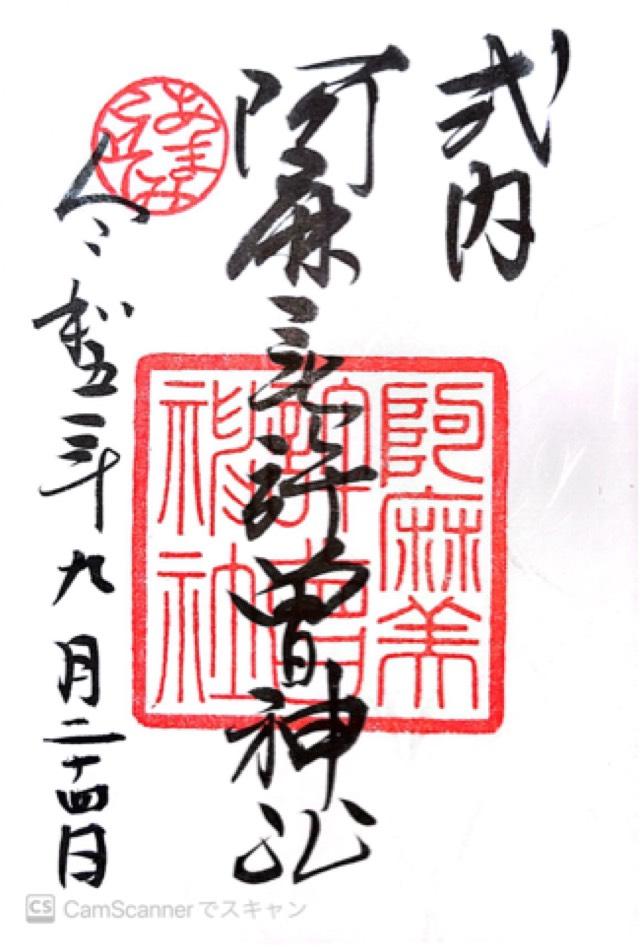 式内
阿麻美許曽神社
令和五年九月二十四日
あまみこそ
阿麻美
許曽
神社
CS CamScannerでスキャン